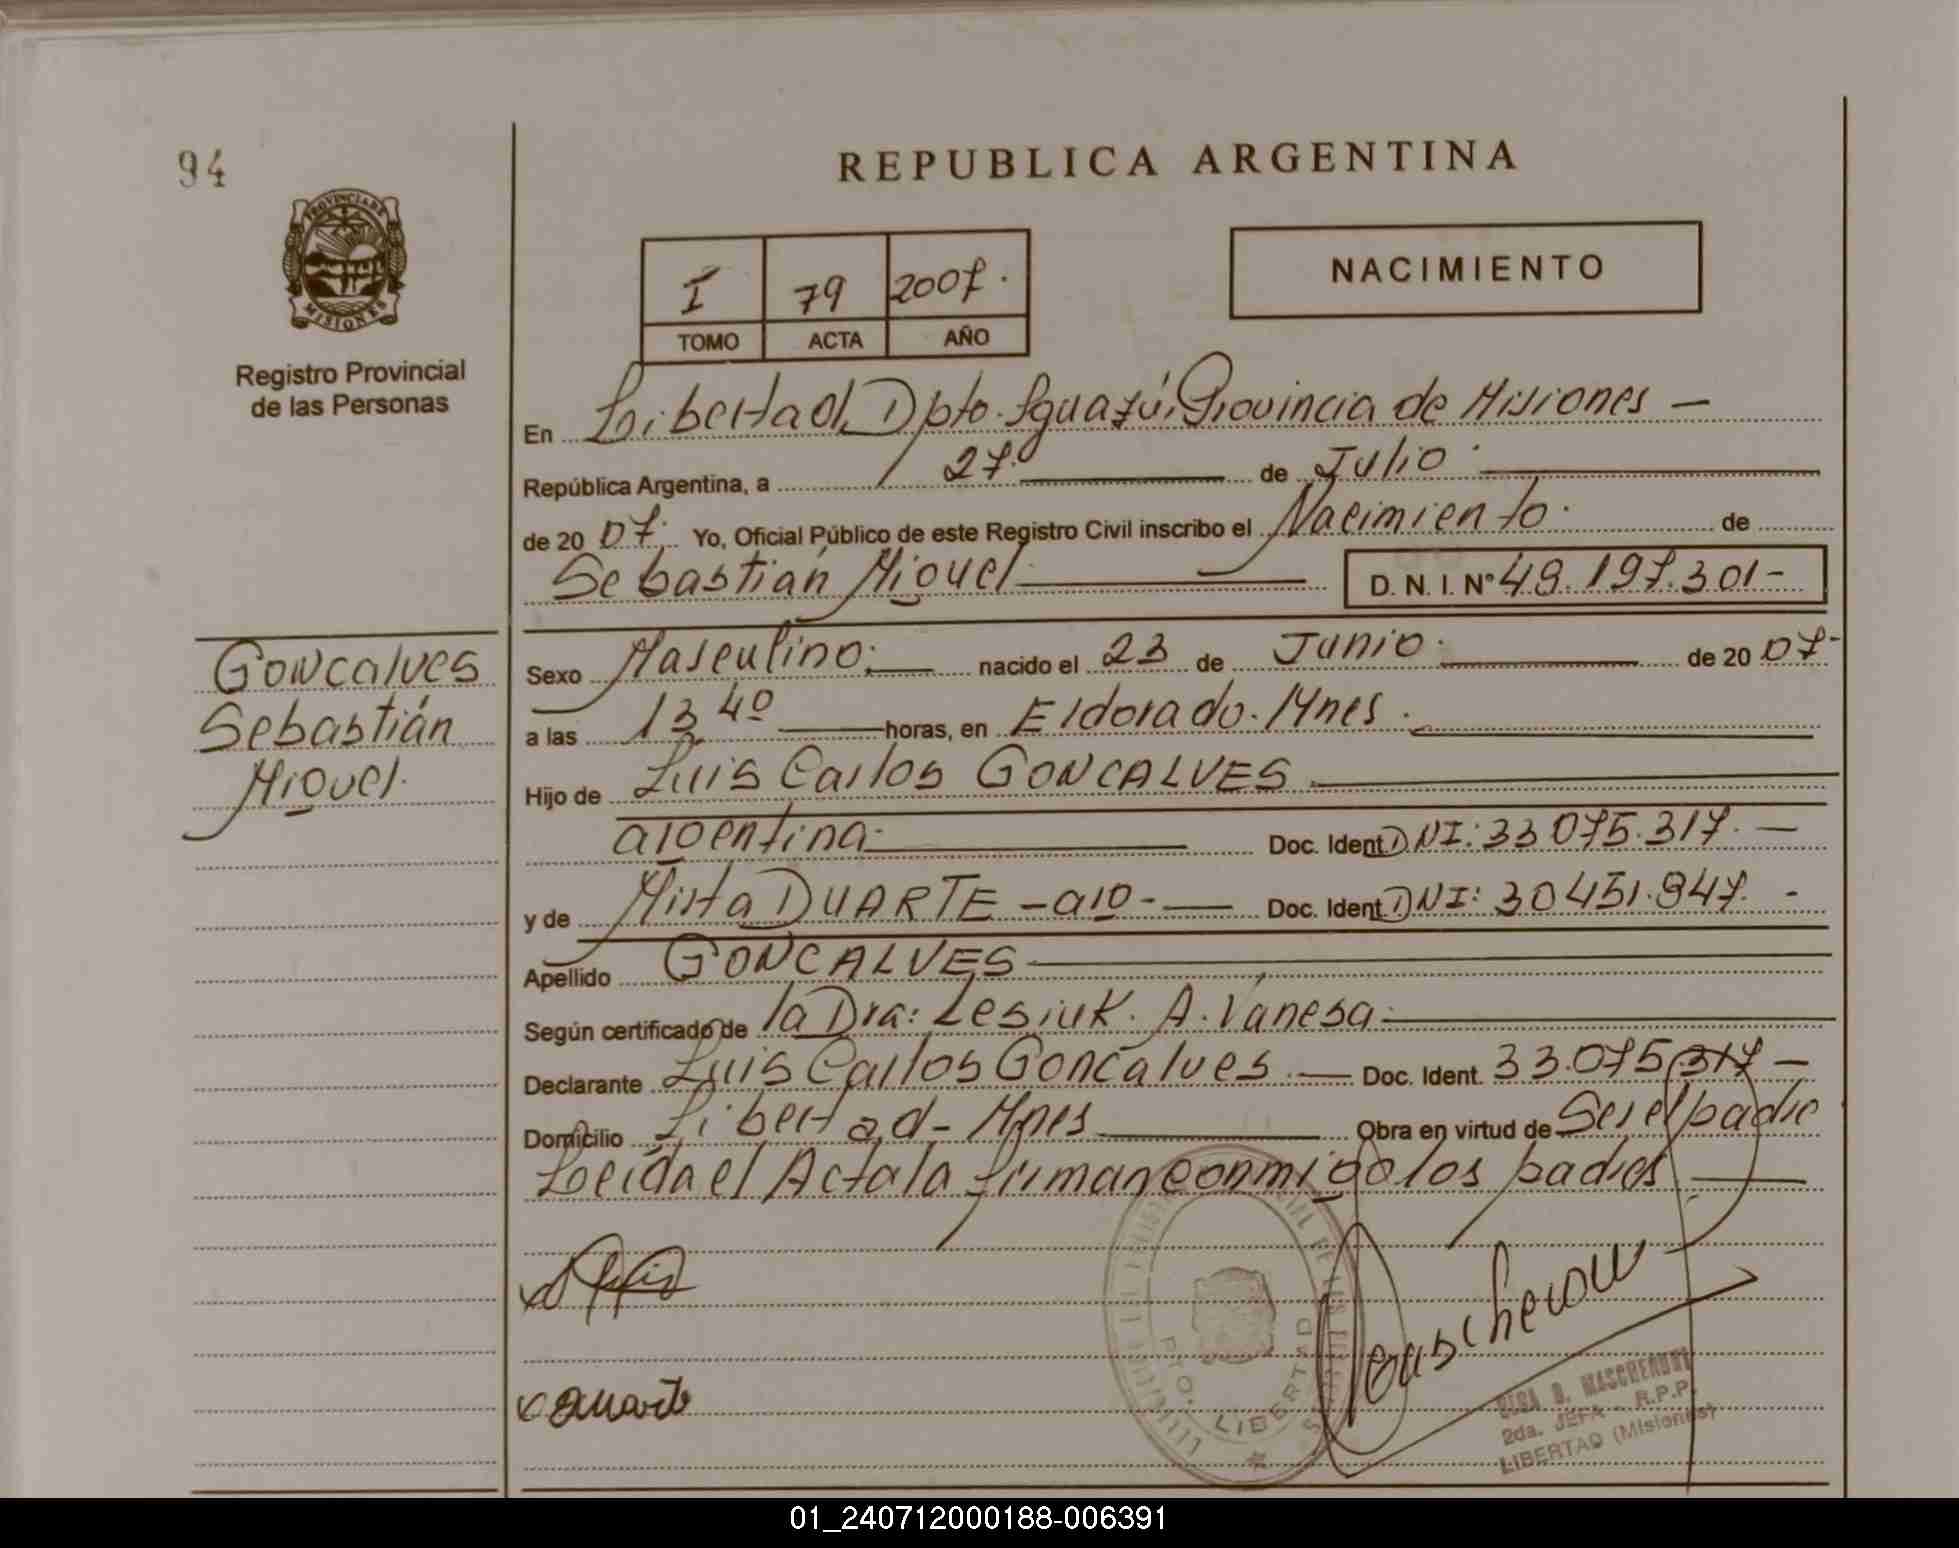 94
REPUBLICA ARGENTINA
PROVINCIA DE
MISIONES
Registro Provincial
de las Personas
I 79 2007.
TOMO ACTA AÑO
NACIMIENTO
En Libertad, Dpto. Iguazú, Provincia de Misiones —
República Argentina, a 27. de Julio.
de 20 07. Yo, Oficial Público de este Registro Civil inscribo el Nacimiento. de
Sebastián Miguel D. N. I. Nº 48.197.301-
Goncalves
Sebastián
Miguel.
Sexo Masculino. nacido el 23 de Junio. de 20 07-
a las 13 40 horas, en Eldorado. Mnes.
Hijo de Luis Carlos GONCALVES
argentina. Doc. Ident. DNI: 33 075.317. —
y de Mirta DUARTE - arg - Doc. Ident. DNI: 30 451.947. -
Apellido GONCALVES
Según certificado de la Dra: Lesiuk. A. Vanesa.
Declarante Luis Carlos Goncalves. — Doc. Ident. 33.075.317 —
Domicilio Libertad - Mnes Obra en virtud de Ser el padre
Leída el Acta la firman conmigo los padres
x
x Duarte
PTO. LIBERTAD
Mascheroni
OLGA D. MASCHERONI
2da. JEFA - R.P.P.
LIBERTAD (Misiones)
01_240712000188-006391